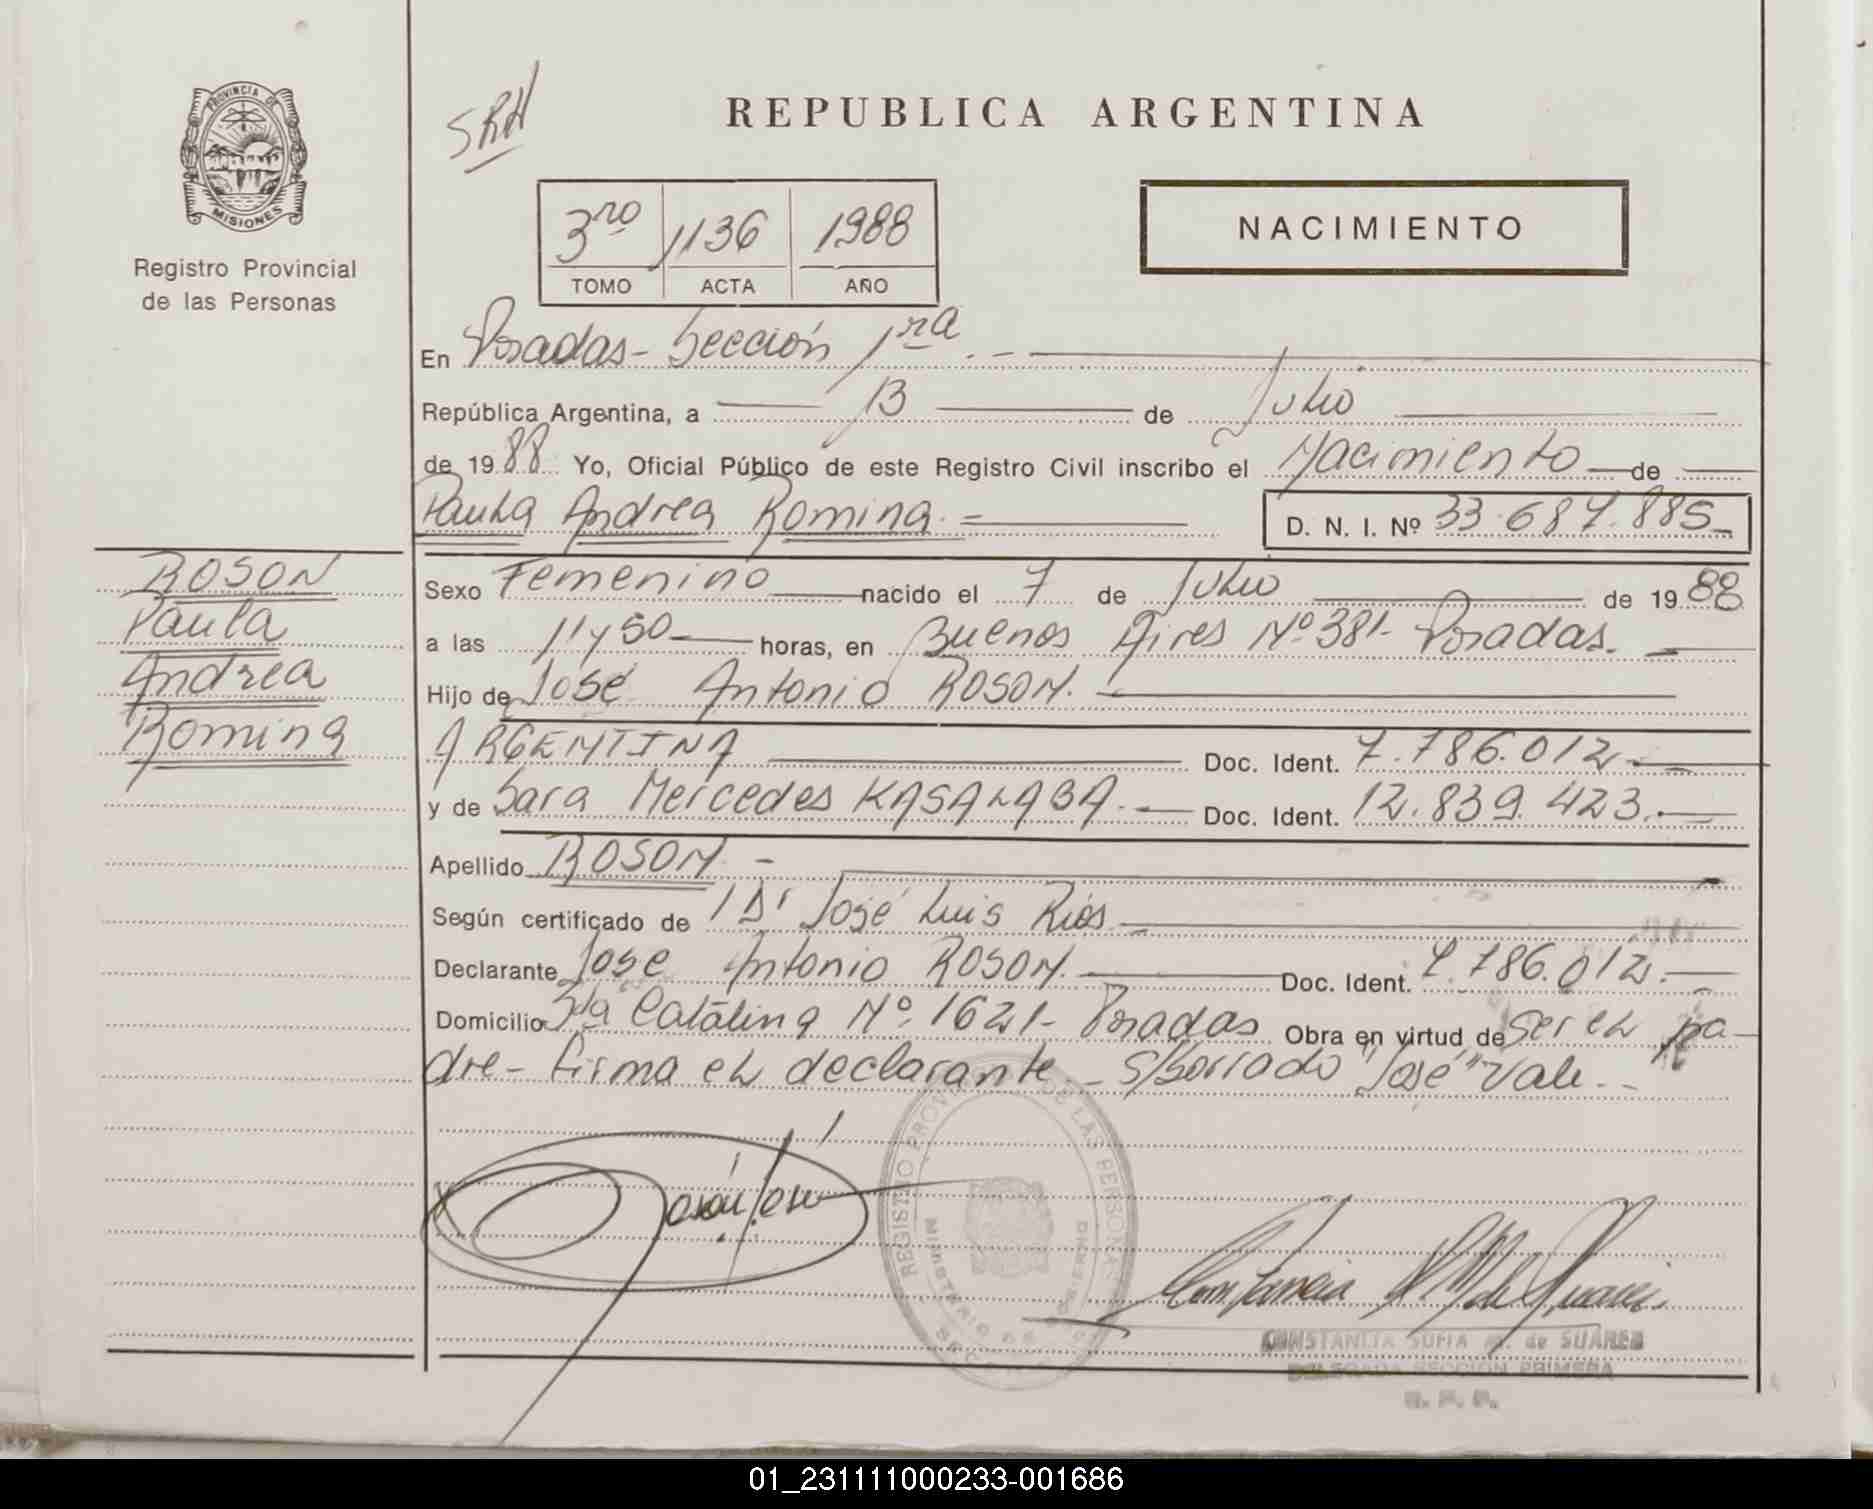 PROVINCIA DE
MISIONES
Registro Provincial
de las Personas
SRH
REPUBLICA ARGENTINA
3ro 1136 1988
TOMO ACTA AÑO
NACIMIENTO
En Posadas - Sección 1ra
República Argentina, a 13 de Julio
de 1988 Yo, Oficial Público de este Registro Civil inscribo el Nacimiento de
Paula Andrea Romina D. N. I. Nº 33.687.885
ROSON
Paula
Andrea
Romina
Sexo Femenino nacido el 7 de Julio de 1988
a las 11 y 50 horas, en Buenos Aires Nº 381 - Posadas.
Hijo de José Antonio ROSON.
ARGENTINA Doc. Ident. 7.786.012
y de Sara Mercedes KASALABA. Doc. Ident. 12.839.423.
Apellido ROSON -
Según certificado de / Dr José Luis Ríos
Declarante José Antonio ROSON. Doc. Ident. 7.786.012.
Domicilio Sta Catalina Nº 1621 - Posadas Obra en virtud de ser el pa-
dre - firma el declarante - S/borrado "José" Vale.
REGISTRO PROVINCIAL DE LAS PERSONAS
MINISTERIO DE GOBIERNO
CONSTANCIA SOFIA M. de SUAREZ
DELEGADA SECCION PRIMERA
R. P. P.
01_231111000233-001686